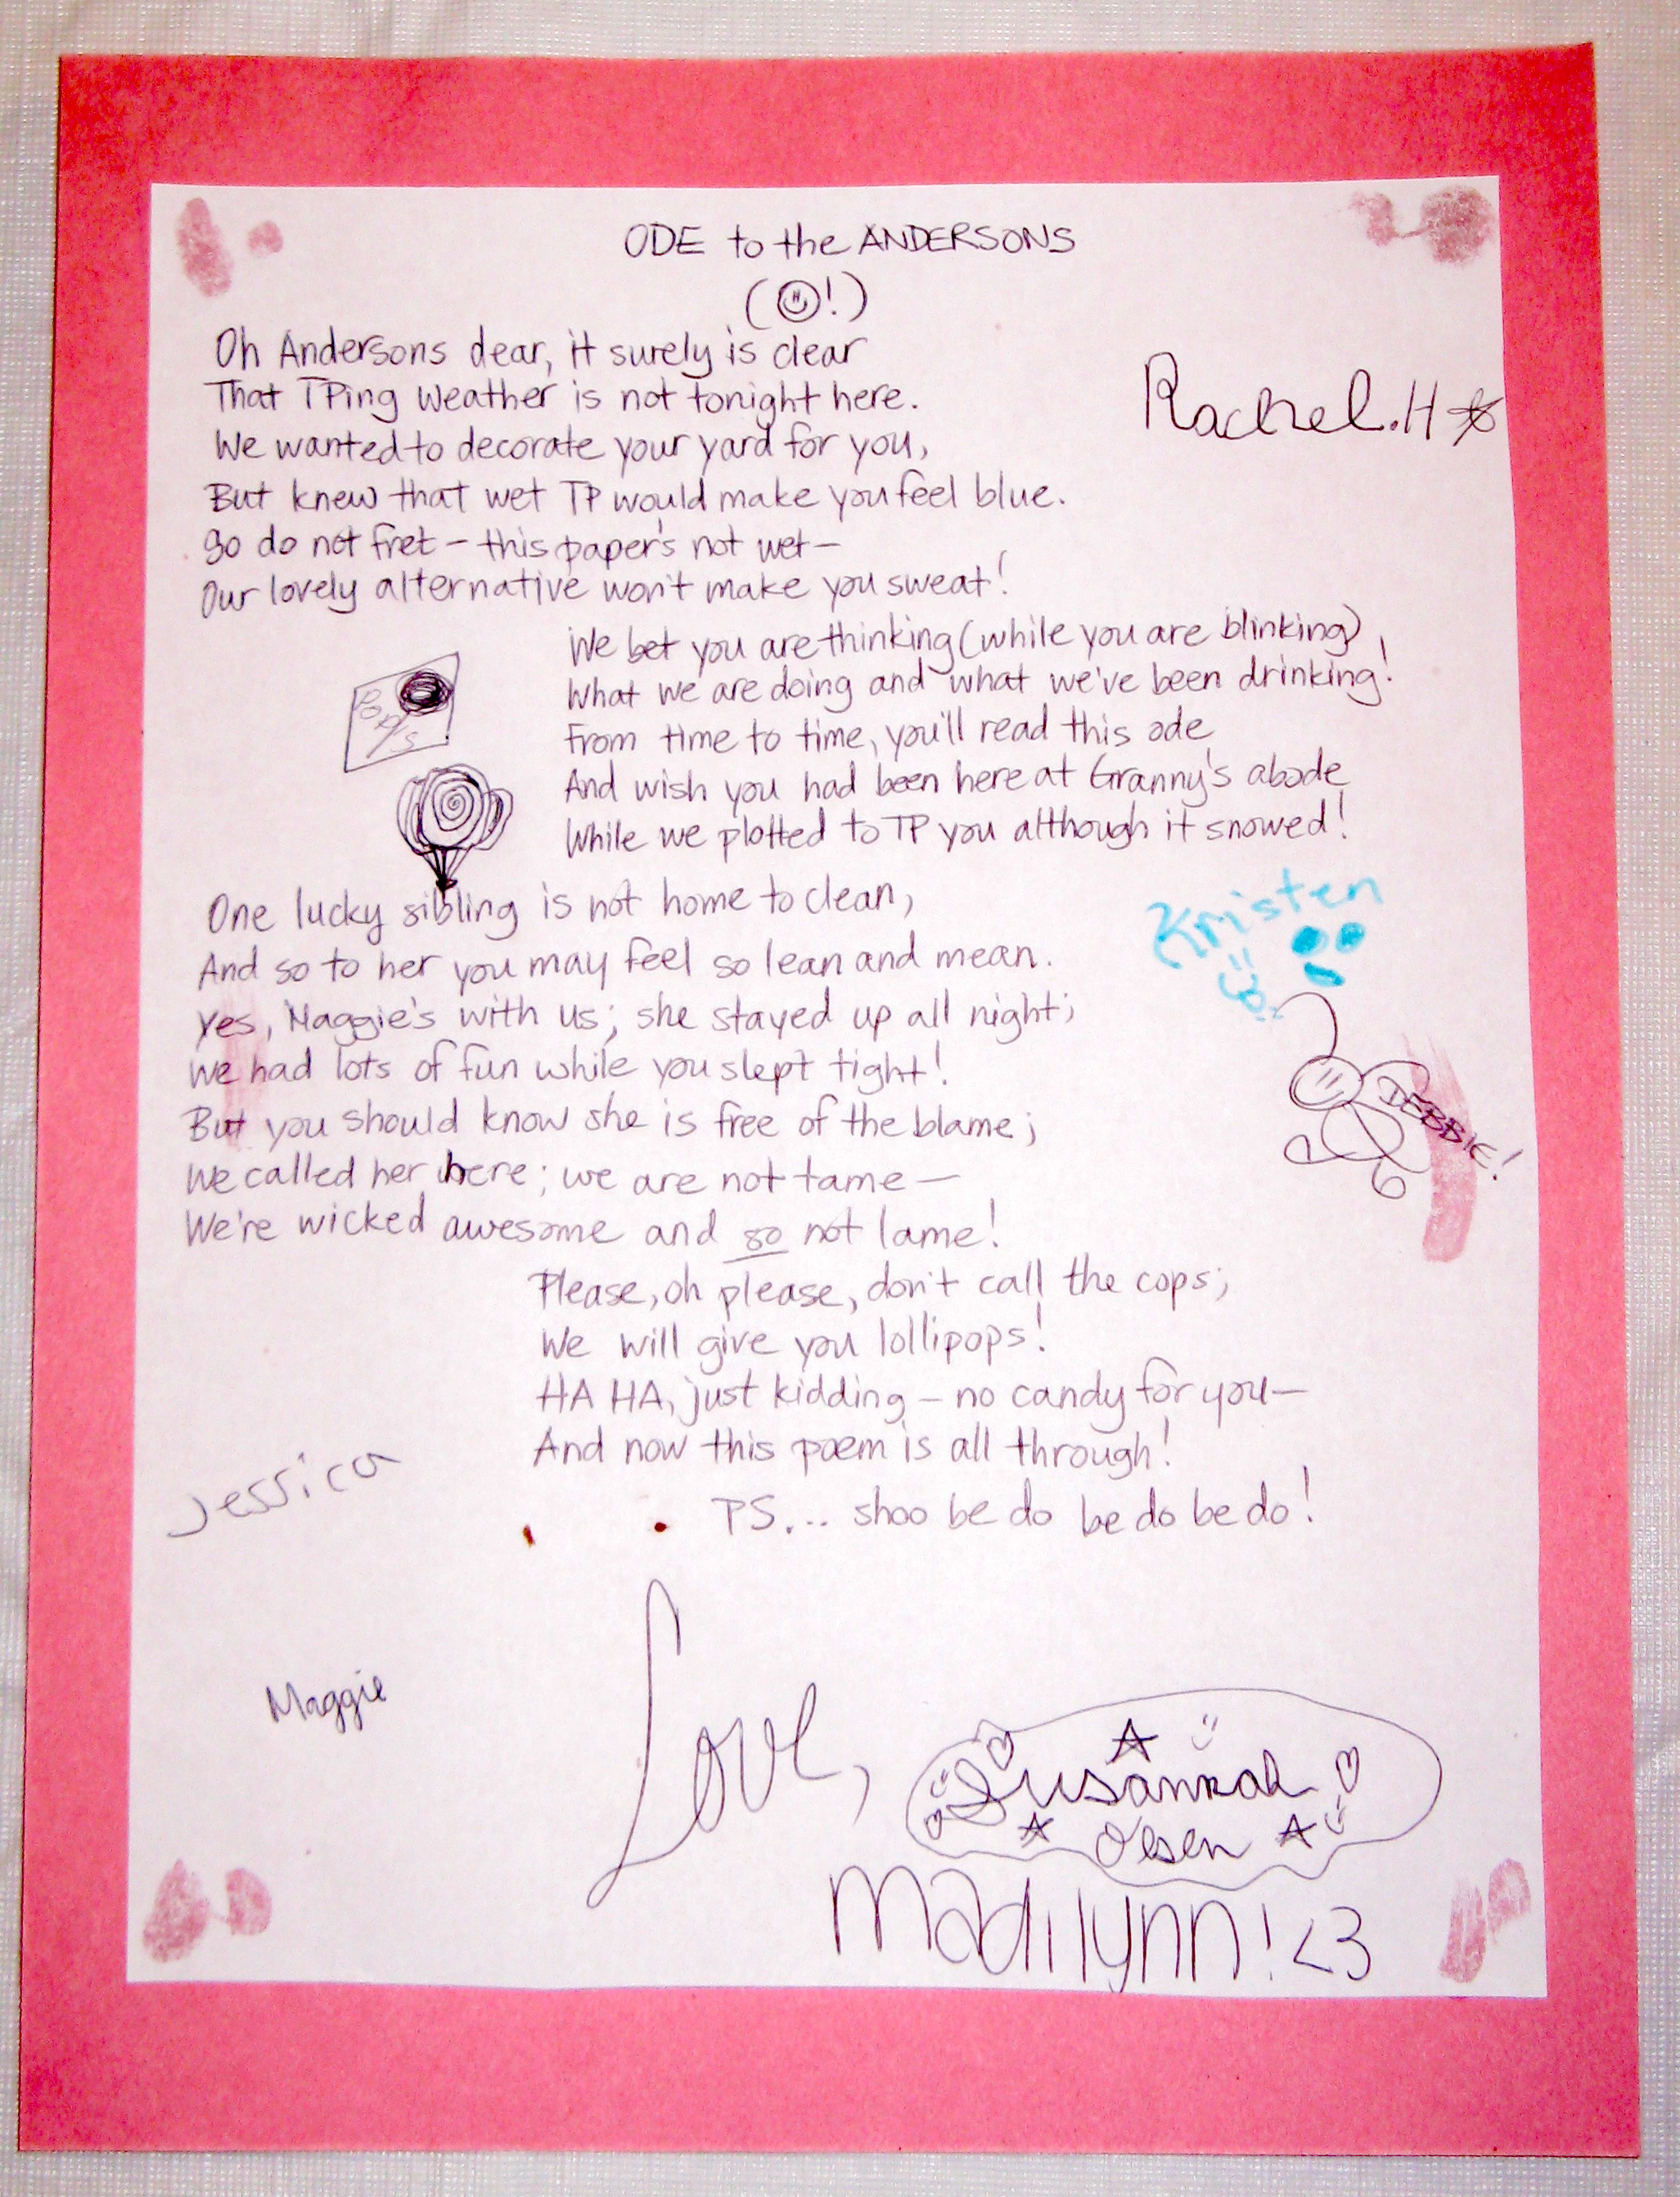 ODE to the ANDERSONS
(☺!)
Oh Andersons dear, it surely is clear
That TPing Weather is not tonight here.
We wanted to decorate your yard for you,
But knew that wet TP would make you feel blue.
So do not fret - this paper's not wet -
Our lovely alternative won't make you sweat!
Rachel.H☆
We bet you are thinking (while you are blinking)
What we are doing and what we've been drinking!
From time to time, you'll read this ode
And wish you had been here at Granny's abode
While we plotted to TP you although it snowed!
One lucky sibling is not home to clean,
And so to her you may feel so lean and mean.
Yes, Maggie's with us; she stayed up all night;
We had lots of fun while you slept tight!
But you should know she is free of the blame;
We called her here; we are not tame -
We're wicked awesome and so not lame!
Kristen
DEBBIE!
Please, oh please, don't call the cops;
We will give you lollipops!
HA HA, just kidding - no candy for you -
And now this poem is all through!
PS... shoo be do be do be do!
Jessica
Maggie
Love,
Susannah
Olsen
Madilynn! <3